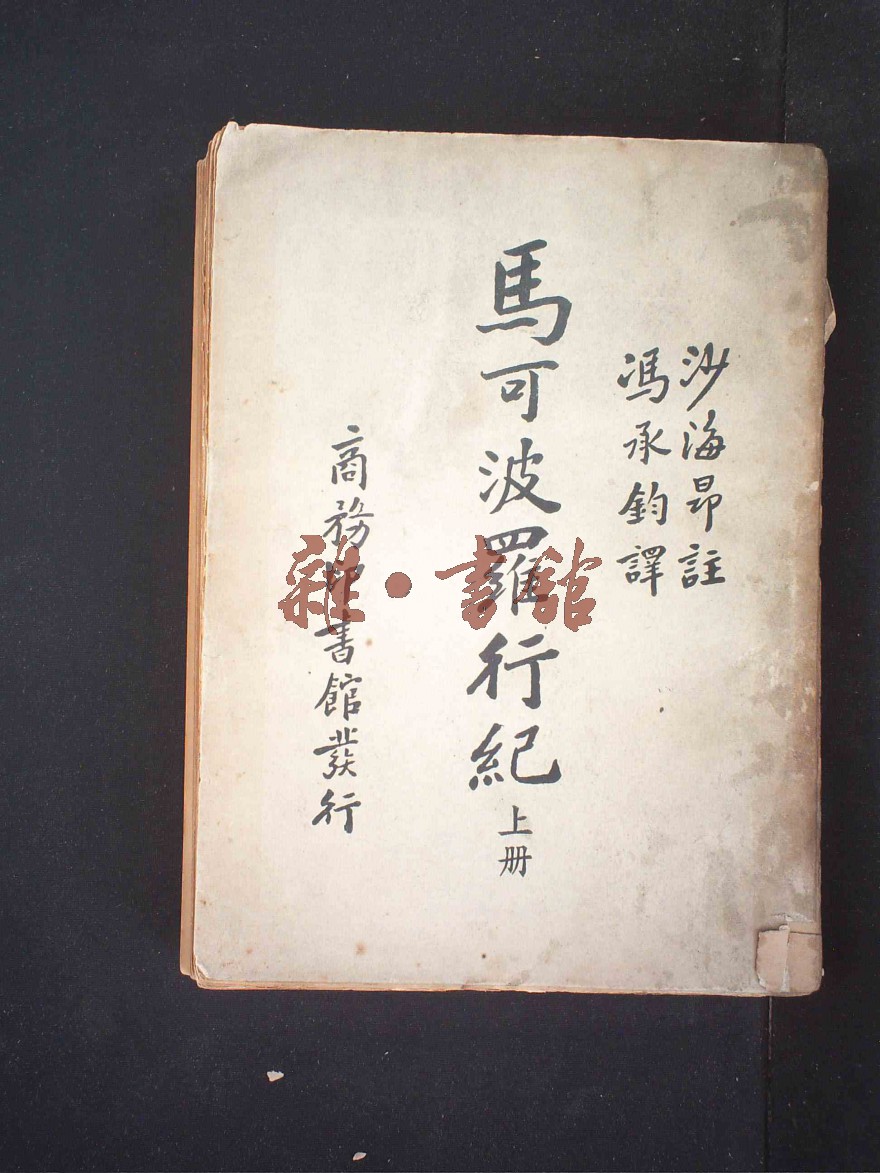 沙海昂註
馮承鈞譯
馬可波羅行紀 上册
商務印書館發行
雜·書館